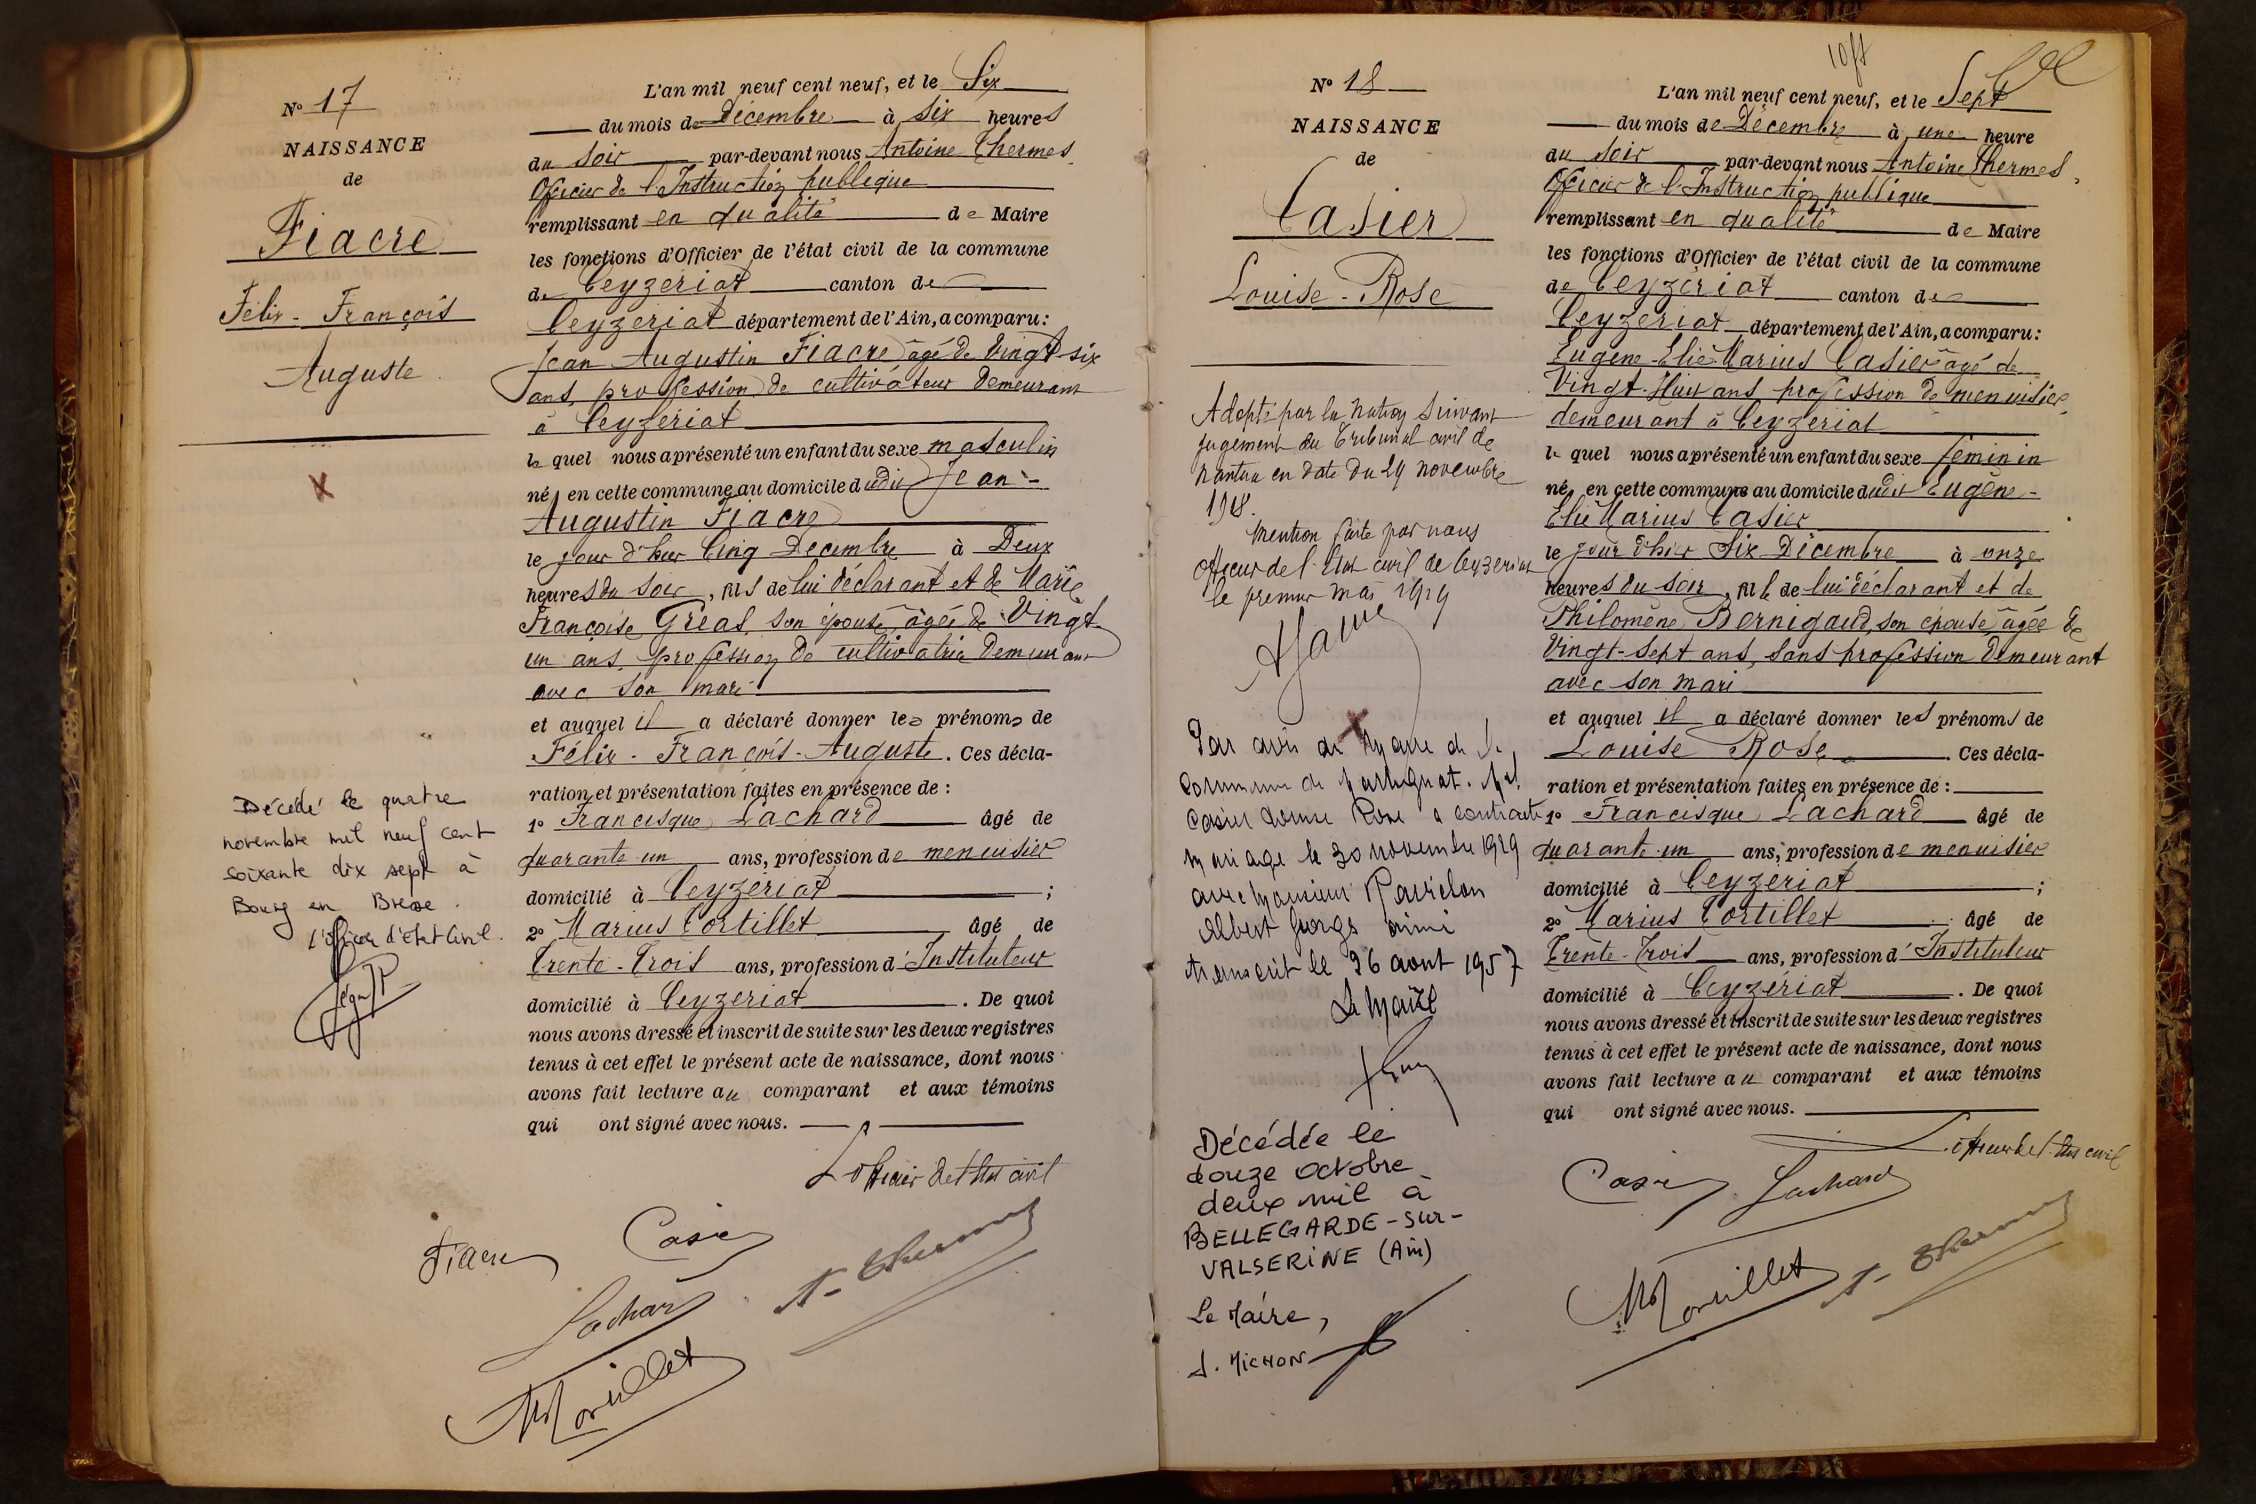 N° 17
NAISSANCE
de
Fiacre
Félix - François
Auguste
Décédé le quatre
novembre mil neuf cent
soixante dix sept à
Bourg en Bresse.
L'officier d'Etat Civil.
L'an mil neuf cent neuf, et le Six
du mois de Décembre à six heures
du soir par-devant nous, Antoine Thermes,
Officier de l'Instruction publique
remplissant en qualité de Maire
les fonctions d'Officier de l'état civil de la commune
de Ceyzériat canton de
Ceyzériat département de l'Ain, a comparu :
Jean Augustin Fiacre âgé de vingt-six
ans, profession de cultivateur demeurant
à Ceyzériat
le quel nous a présenté un enfant du sexe masculin
né en cette commune au domicile dudit Jean-
Augustin Fiacre
le jour d'hier Cinq Décembre à Deux
heures du soir, fils de lui déclarant et de Marie
Françoise Gréal, son épouse, âgée de Vingt-
un ans, profession de cultivatrice demeurant
avec son mari
et auquel il a déclaré donner les prénoms de
Félix - François - Auguste. Ces décla-
ration et présentation faites en présence de :
1° Francisque Lachard âgé de
quarante-un ans, profession de menuisier
domicilié à Ceyzériat ;
2° Marius Cortillet âgé de
Trente-Trois ans, profession d'Instituteur
domicilié à Ceyzériat. De quoi
nous avons dressé et inscrit de suite sur les deux registres
tenus à cet effet le présent acte de naissance, dont nous
avons fait lecture au comparant et aux témoins
qui ont signé avec nous.
L'officier de l'état civil
Fiacre Casier
Lachard A. Thermes
M Cortillet
N° 18
NAISSANCE
de
Casier
Louise - Rose
Adopté par la Nation suivant
jugement du Tribunal civil de
Nantua en date du 29 novembre
1918.
Mention faite par nous
officier de l'état civil de Ceyzériat
le premier mai 1919
Par avis du Maire de la
Commune de Martignat. Mel
Casier Louise Rose a contracté
mariage le 30 novembre 1929
avec Monsieur
Albert Georges Aimé
transcrit le 26 août 1957
Le Maire
Décédée le
douze octobre
deux mil à
BELLEGARDE-sur-
VALSERINE (Ain)
Le Maire,
J. MICHON
10 ft
L'an mil neuf cent neuf, et le Sept
du mois de Décembre à une heure
du soir par-devant nous Antoine Thermes,
Officier de l'Instruction publique
remplissant en qualité de Maire
les fonctions d'Officier de l'état civil de la commune
de Ceyzériat canton de
Ceyzériat département de l'Ain, a comparu :
Eugène-Elie Marius Casier âgé de
Vingt-Huit ans, profession de menuisier,
demeurant à Ceyzériat
le quel nous a présenté un enfant du sexe féminin
né, en cette commune au domicile dudit Eugène-
Elie Marius Casier
le jour d'hier Six Décembre à onze
heures du soir, fille de lui déclarant et de
Philomène Bernigaud, son épouse âgée de
Vingt-sept ans, sans profession demeurant
avec son mari
et auquel il a déclaré donner les prénoms de
Louise Rose. Ces décla-
ration et présentation faites en présence de :
1° Francisque Lachard âgé de
quarante-un ans, profession de menuisier
domicilié à Ceyzériat ;
2° Marius Cortillet âgé de
Trente-Trois ans, profession d'Instituteur
domicilié à Ceyzériat. De quoi
nous avons dressé et inscrit de suite sur les deux registres
tenus à cet effet le présent acte de naissance, dont nous
avons fait lecture au comparant et aux témoins
qui ont signé avec nous.
L'officier de l'état civil
Casier Lachard
M Cortillet A. Thermes